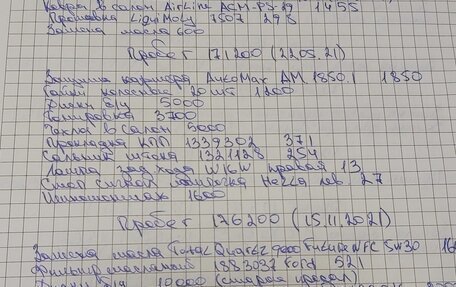 Ковра в салон AirLine ACM-PS-19 1455
Промывка LiquiMoly 7507 298
Замена масла 600
Пробег 171200 (22.05.21)
Защита картера AutoMax AM.1850.1 1850
Гайки колесные 20шт 1200
Диски б/у 5000
Полировка 3700
Чехлы в салон 5000
Прокладка КПП 1339302 371
Сальник штока 1321128 254
Лампа зад хода W16W правая 13
Стоп сигнал лампочка Hella лев. 27
Шиномонтаж 1600
Пробег 176200 (15.11.2021)
Замена масла Total Quartz 9000 Future NFC 5w30
Фильтр масляный 1883037 Ford 521
10000 (старая продал)